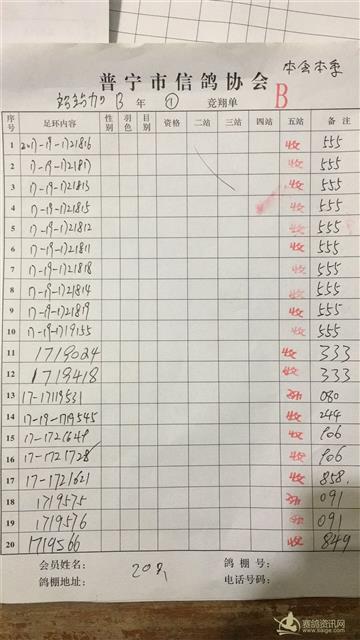 本会本季
普宁市信鸽协会
B 年 ① 竞翔单 B
序号 足环内容 性别 羽色 目别 资格 二站 三站 四站 五站 备注
1 2017-19-1721816 收 555
2 17-19-1721817 收 555
3 17-19-1721813 收 555
4 17-19-1721815 收 555
5 17-19-1721812 收 555
6 17-19-1721811 收 555
7 17-19-1721818 收 555
8 17-19-1721814 收 555
9 17-19-1721819 收 555
10 17-19-1719155 收 555
11 1719024 收 333
12 1719418 收 333
13 17-17119531 080
14 17-19-1719545 收 244
15 17-1721649 收 906
16 17-1721728 收 906
17 17-1721621 收 858
18 1719575 091
19 1719576 收 091
20 1719566 收 849
会员姓名: 鸽棚号:
鸽棚地址: 电话号码:
赛鸽资讯网
www.saige.com